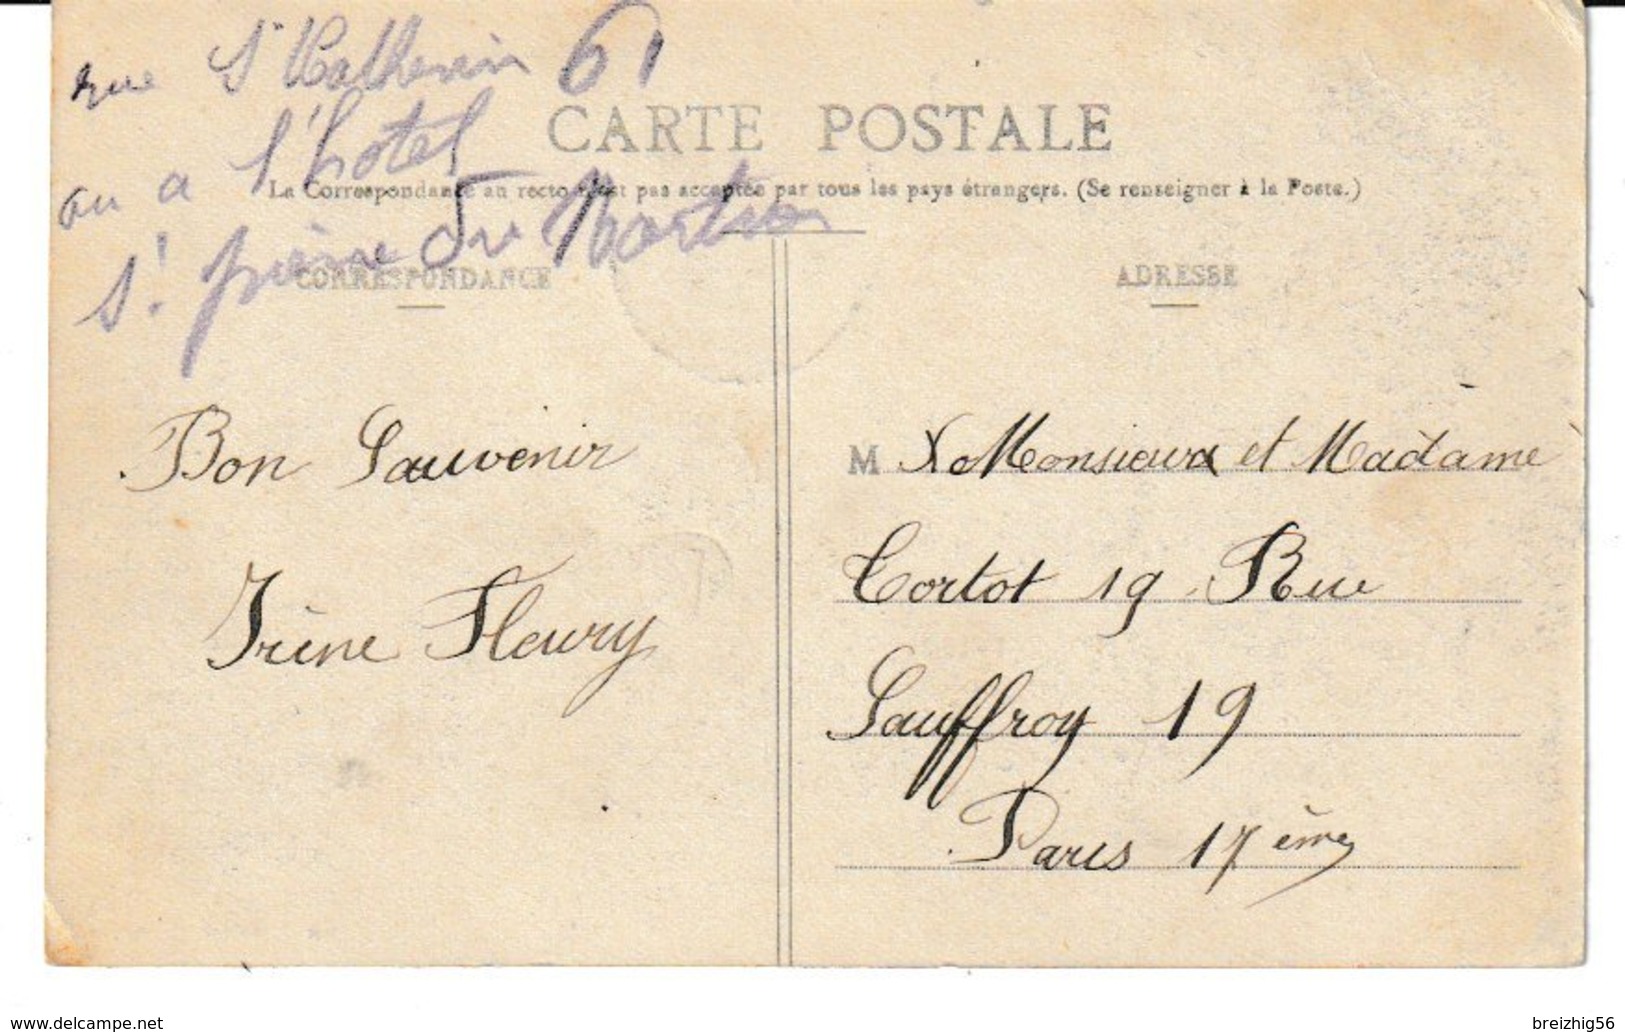 rue St Catherin 61
CARTE POSTALE
ou a l'hotel
La Correspondance au recto n'est pas acceptée par tous les pays étrangers. (Se renseigner à la Poste.)
St. pierre
CORRESPONDANCE
ADRESSE
Bon Sauvenir
Irène Fleury
M Monsieur et Madame
Cortot 19 Rue
Sauffroy 19
Paris 17ème
www.delcampe.net
breizhig56